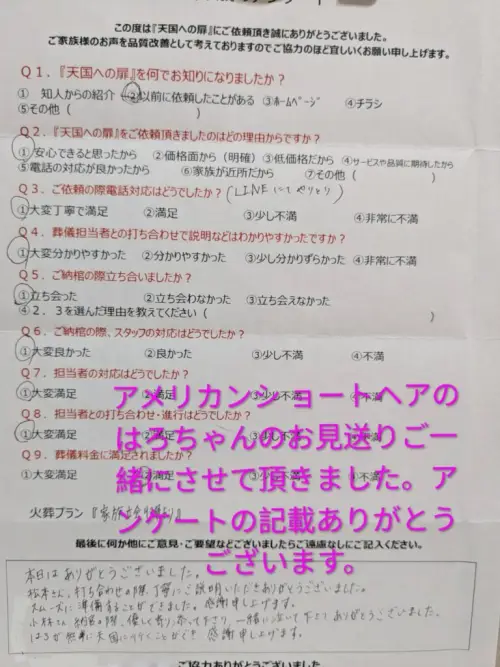 アンケート
この度は『天国への扉』にご依頼頂き誠にありがとうございました。
ご家族様のお声を品質改善として考えておりますのでご協力のほど宜しいくお願い申し上げます。
Q1．『天国への扉』を何でお知りになりましたか？
① 知人からの紹介 ②以前に依頼したことがある ③ﾎｰﾑﾍﾟｰｼﾞ ④チラシ
⑤その他（ ）
Q2．『天国への扉』をご依頼頂きましたのはどの理由からですか？
①安心できると思ったから ②価格面から（明確） ③低価格だから ④サービスや品質に期待したから
⑤電話の対応が良かったから ⑥家族が近所だから ⑦その他（ ）
Q3．ご依頼の際電話対応はどうでしたか？（LINEにてやりとり）
①大変丁寧で満足 ②満足 ③少し不満 ④非常に不満
Q4．葬儀担当者との打ち合わせで説明などはわかりやすかったですか？
①大変分かりやすかった ②分かりやすかった ③少し分かりずらかった ④非常に不満
Q5．ご納棺の際立ち合いましたか？
①立ち会った ②立ち会わなかった ③立ち会えなかった
④2．3を選んだ理由を教えてください（ ）
Q6．ご納棺の際、スタッフの対応はどうでしたか？
①大変良かった ②良かった ③少し不満 ④不満
Q7．担当者の対応はどうでしたか？
①大変満足 ②満足 ③少し不満 ④不満
Q8．担当者との打ち合わせ・進行はどうでしたか？
①大変満足 ②満足 ③少し不満 ④不満
Q9．葬儀料金に満足されましたか？
①大変満足 ②満足 ③少し不満 ④不満
アメリカンショートヘアの
はるちゃんのお見送りご一
緒にさせて頂きました。ア
ンケートの記載ありがとう
ございます。
火葬プラン『家族
最後に何か他にご意見・ご要望などございましたらご遠慮なしにご記入ください。
本日はありがとうございました。
松本さん、打ち合わせの際、丁寧にご説明いただきありがとうございました。
スムーズに準備することができました。感謝申し上げます。
小林さん 納棺の際、優しく寄り添って下さり、一緒に泣いて下さりありがとうございました。
はるが無事に天国に行くことができ 感謝申し上げます。
ご協力ありがとうございました